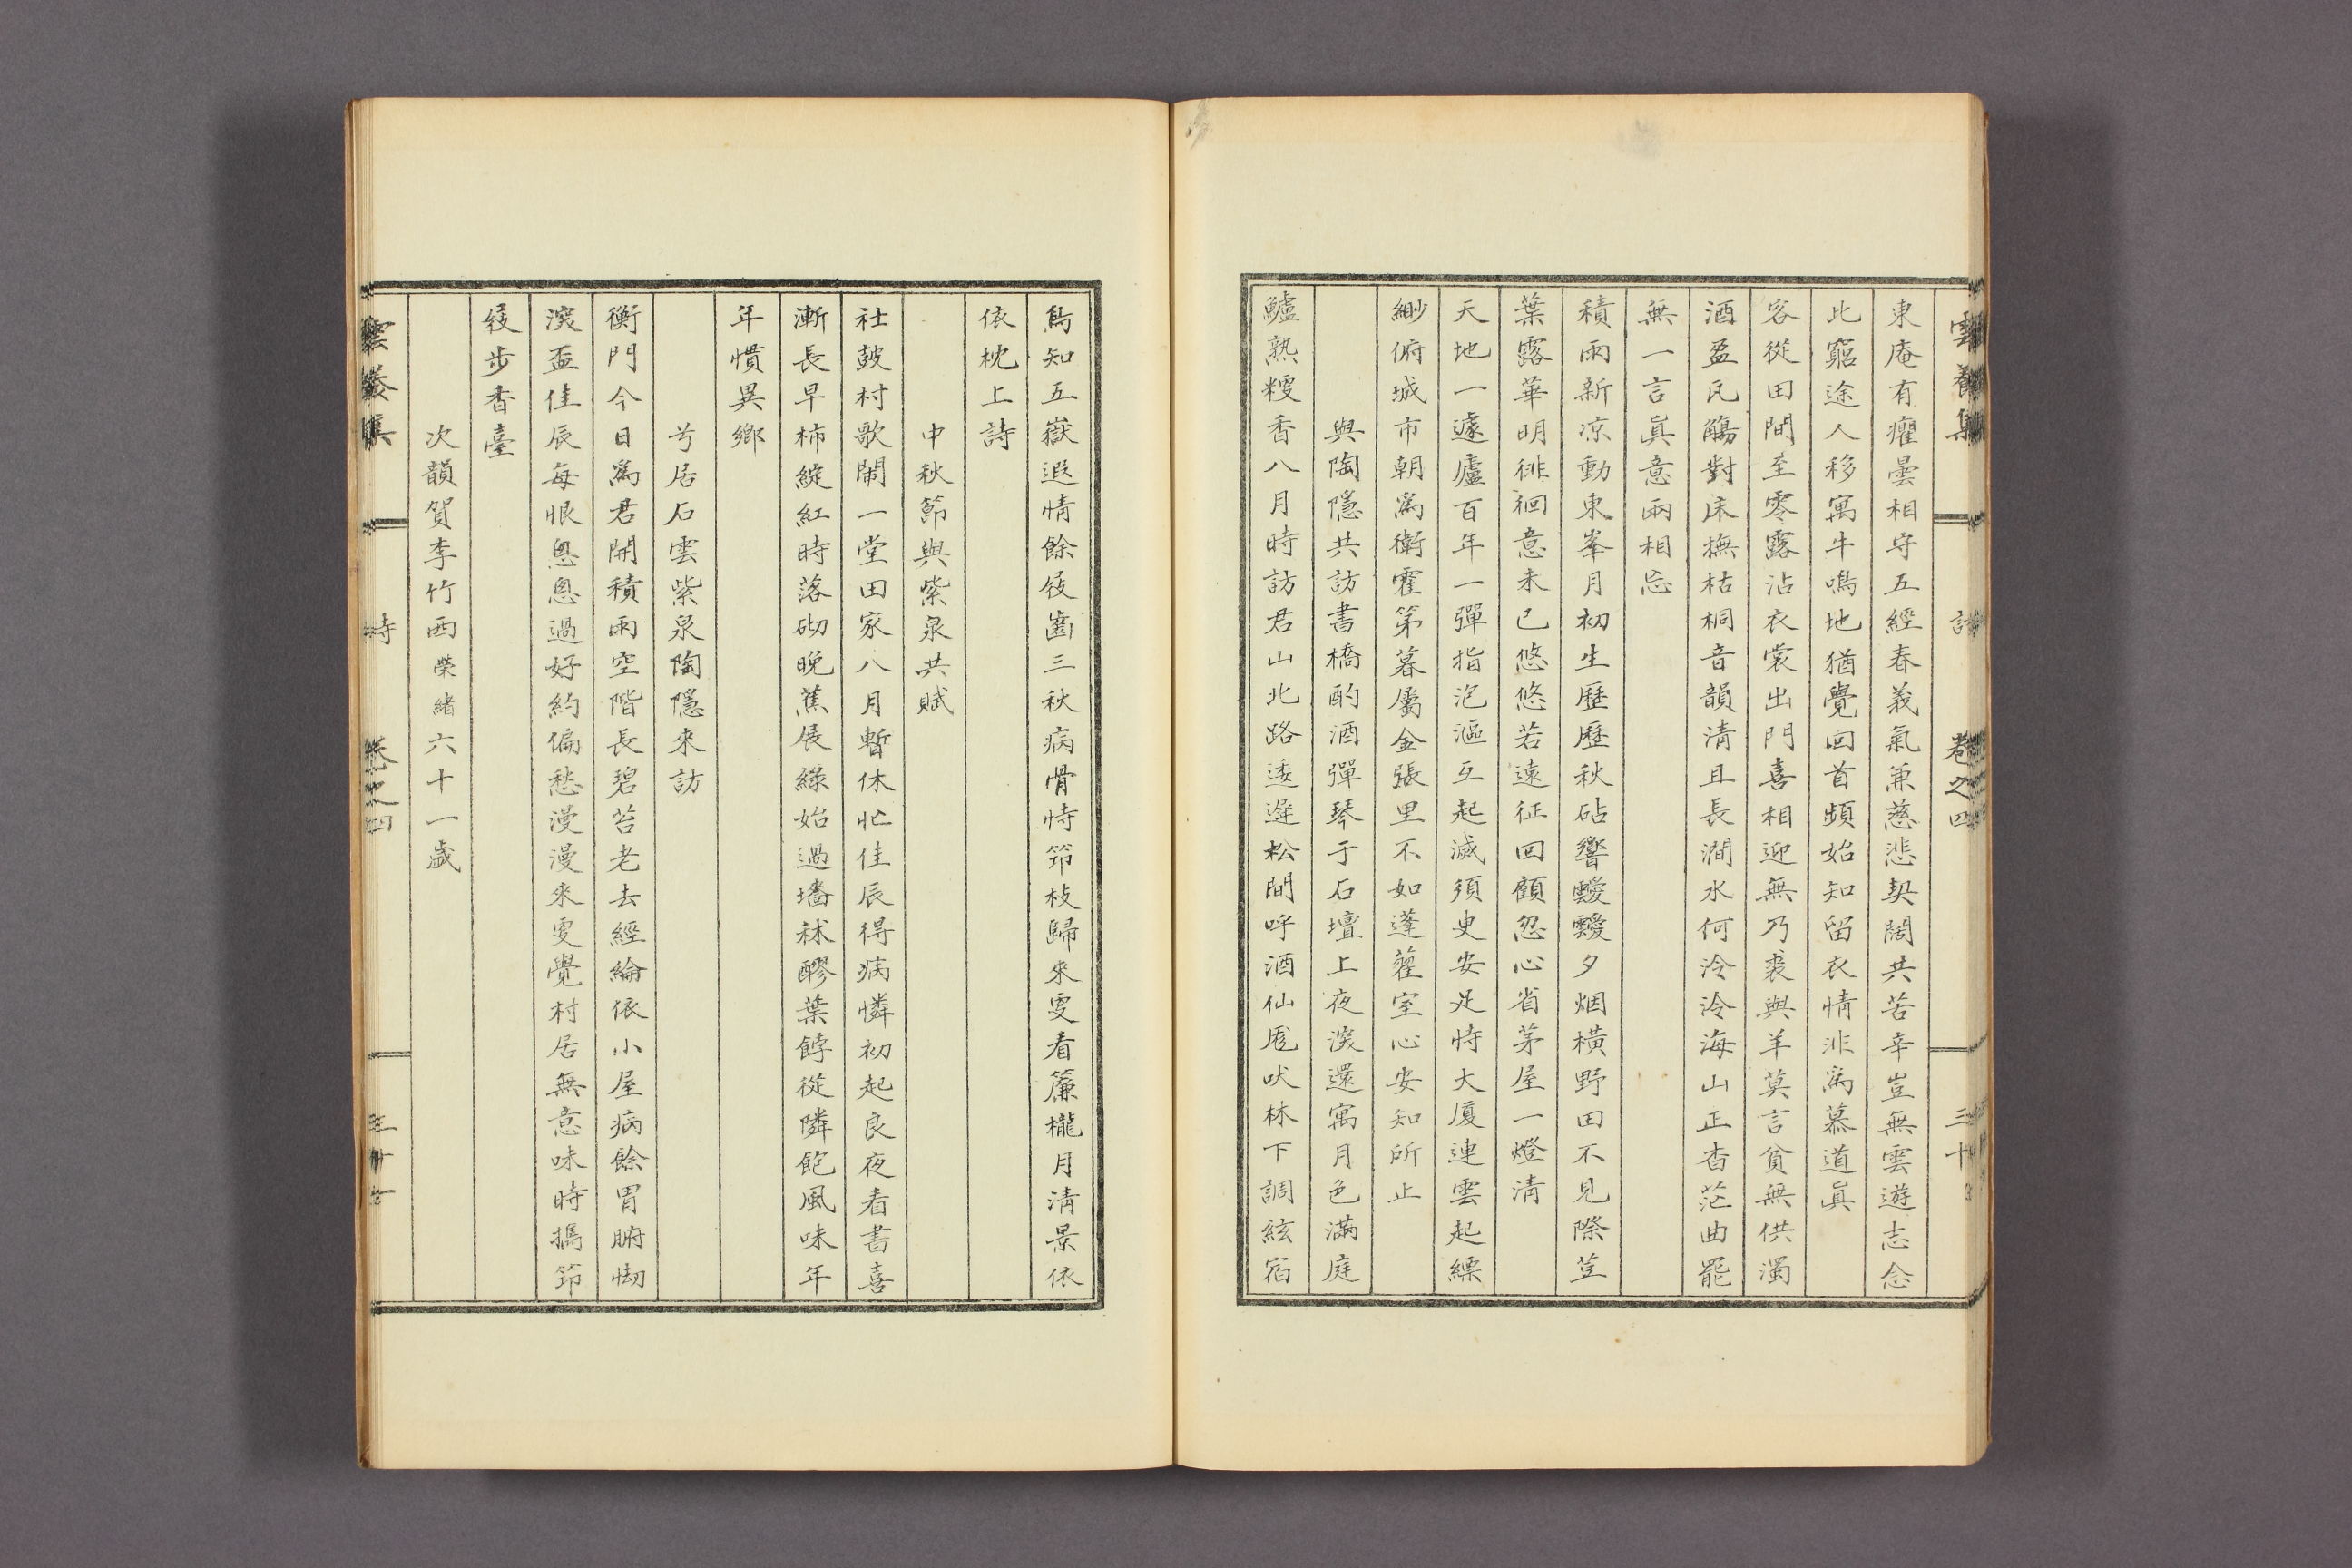 雲養集 詩 卷之四 三十
東庵有癯曇相守五經春義氣兼慈悲契闊共苦辛豈無雲遊志念
此窮途人移寓牛鳴地猶覺回首頻始知留衣情非爲慕道眞
客從田間至零露沾衣裳出門喜相迎無乃裘與羊莫言貧無供濁
酒盈瓦觴對床撫枯桐音韻清且長澗水何泠泠海山正杳茫曲罷
無一言眞意兩相忘
積雨新凉動東峯月初生歷歷秋砧響靉靉夕烟橫野田不見際荳
葉露華明徘徊意未已悠悠若遠征回顧忽心省茅屋一燈淸
天地一蘧廬百年一彈指泡漚互起滅須臾安足恃大厦連雲起縹
緲俯城市朝爲衛霍第暮屬金張里不如蓬藋室心安知所止
與陶隱共訪書橋酌酒彈琴于石壇上夜深還寓月色滿庭
鱸熟稷香八月時訪君山北路逶遲松間呼酒仙厖吠林下調絃宿
鳥知五嶽遐情餘屐齒三秋病骨恃筇枝歸來更看簾櫳月清景依
依枕上詩
中秋節與紫泉共賦
社鼓村歌鬧一堂田家八月暫休忙佳辰得病憐初起良夜看書喜
漸長早柿綻紅時落砌晚蕉展綠始過墻秫醪葉餑從隣飽風味年
年慣異鄉
兮居石雲紫泉陶隱來訪
衡門今日爲君開積雨空階長碧苔老去經綸依小屋病餘胃腑㤼
深盃佳辰每恨悤悤過好約偏愁漫漫來更覺村居無意味時携筇
緩步香臺
次韻賀李竹西榮緖六十一歲
雲養集 詩 卷之四 三十